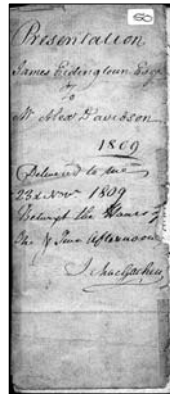 Presentation
James Eidingtoun Esqr
To
Mr Alexr Davidson
1809
Delivered to me
23d Novr 1809
Betwixt the Hours of
One & Two Afternoon